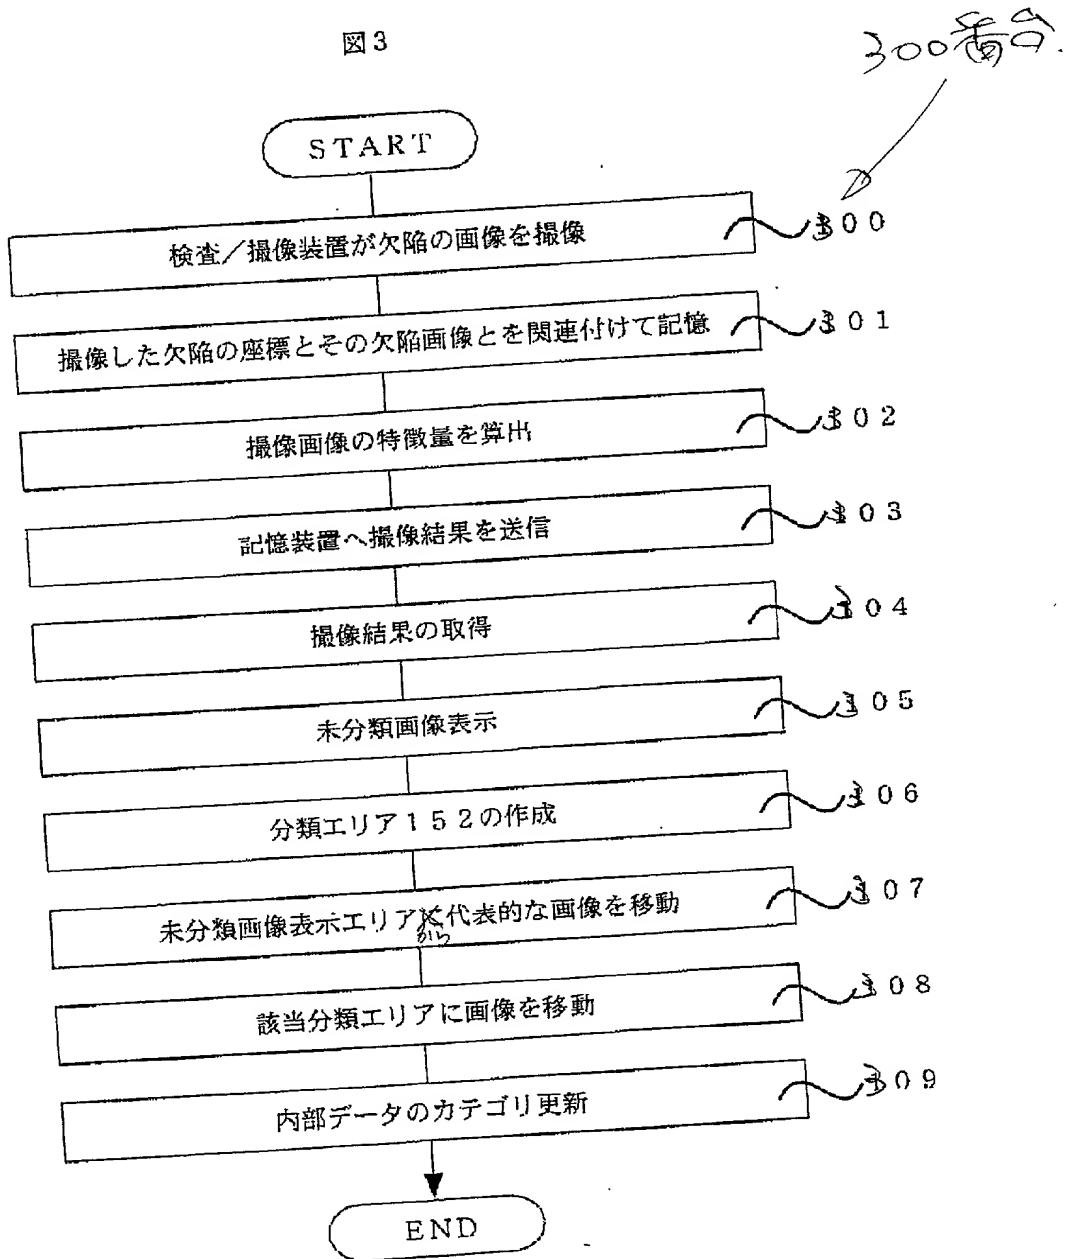 図3
300番台.
START
検査／撮像装置が欠陥の画像を撮像
300
撮像した欠陥の座標とその欠陥画像とを関連付けて記憶
301
撮像画像の特徴量を算出
302
記憶装置へ撮像結果を送信
303
撮像結果の取得
304
未分類画像表示
305
分類エリア152の作成
306
未分類画像表示エリアに代表的な画像を移動
から
307
該当分類エリアに画像を移動
308
内部データのカテゴリ更新
309
END